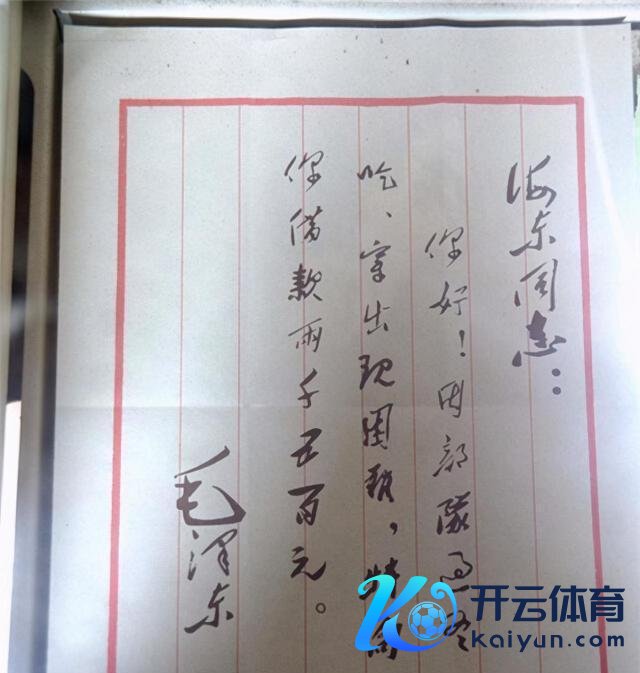 海东同志：
你好！因部隊过冬
吃、穿出现困难，特向
你借款兩千五百元。
毛泽东
开云体育
kaiyun.com